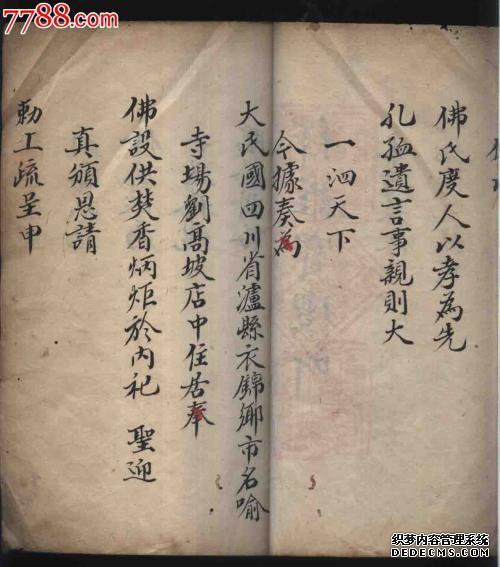 7788.com
佛氏度人以孝為先
孔孟遺言事親則大
一泗天下
今據奏為
大民國四川省瀘縣衣錦鄉市名喻
寺場劉髙坡店中住居奉
佛設供焚香炳炬於內祀 聖迎
真頒恩請
勅工疏呈申
织梦内容管理系统
DEDECMS.COM